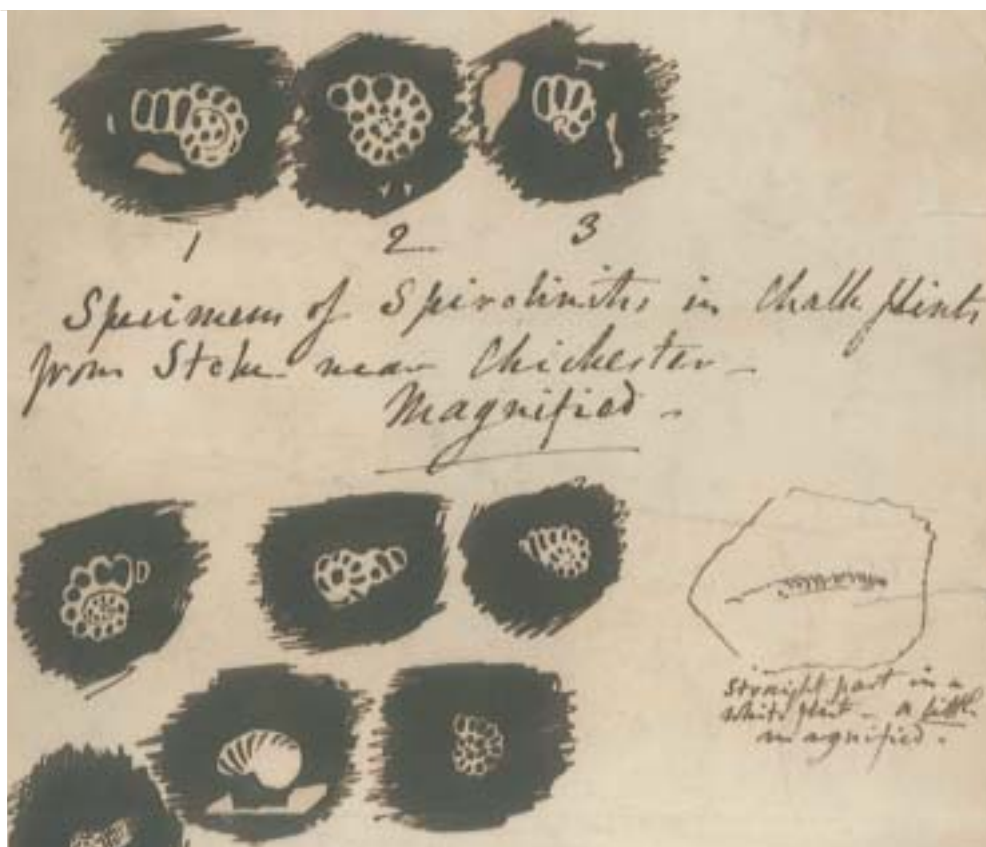 1 2 3
Specimens of Spirolinites in Chalk flints
from Stoke near Chichester -
Magnified -
Straight part in a
white flint - a little
magnified.